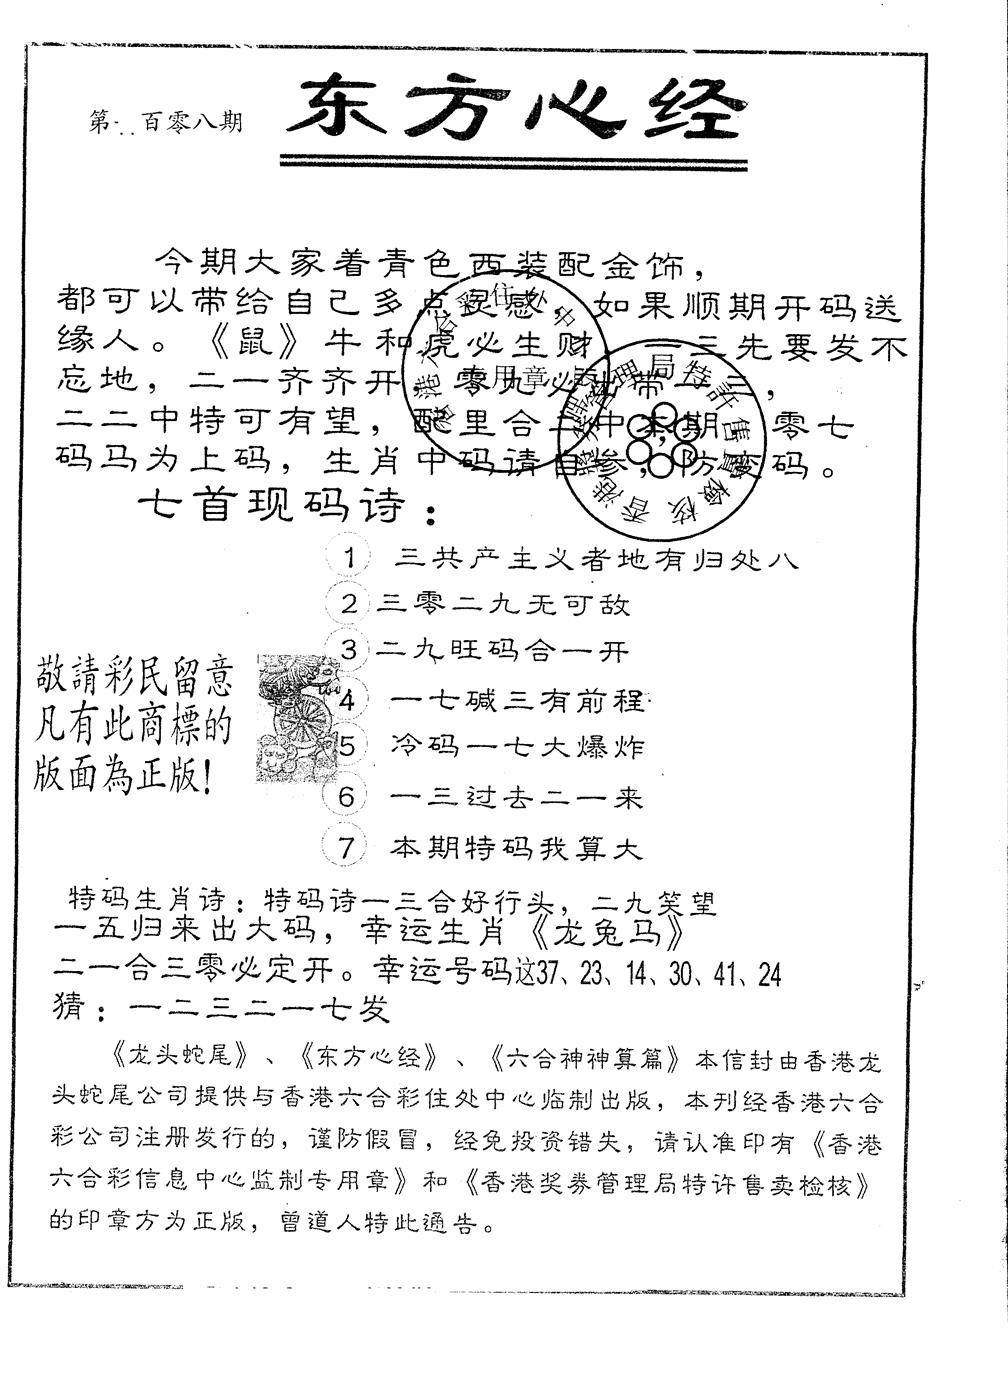 第一百零八期
东方心经
今期大家着青色西装配金饰，
都可以带给自己多点灵感，如果顺期开码送
缘人。《鼠》牛和虎必生财，一三先要发不
忘地，二一齐齐开，零九必出带
二二中特可有望，配里合二中本期，零七
码马为上码，生肖中码请自参，防变码。
七首现码诗：
1 三共产主义者地有归处八
2 三零二九无可敌
3 二九旺码合一开
4 一七碱三有前程
5 冷码一七大爆炸
6 一三过去二一来
7 本期特码我算大
敬請彩民留意
凡有此商標的
版面為正版!
特码生肖诗：特码诗一三合好行头，二九笑望
一五归来出大码，幸运生肖《龙兔马》
二一合三零必定开。幸运号码这37、23、14、30、41、24
猜：一二三二一七发
《龙头蛇尾》、《东方心经》、《六合神神算篇》本信封由香港龙
头蛇尾公司提供与香港六合彩住处中心临制出版，本刊经香港六合
彩公司注册发行的，谨防假冒，经免投资错失，请认准印有《香港
六合彩信息中心监制专用章》和《香港奖券管理局特许售卖检核》
的印章方为正版，曾道人特此通告。